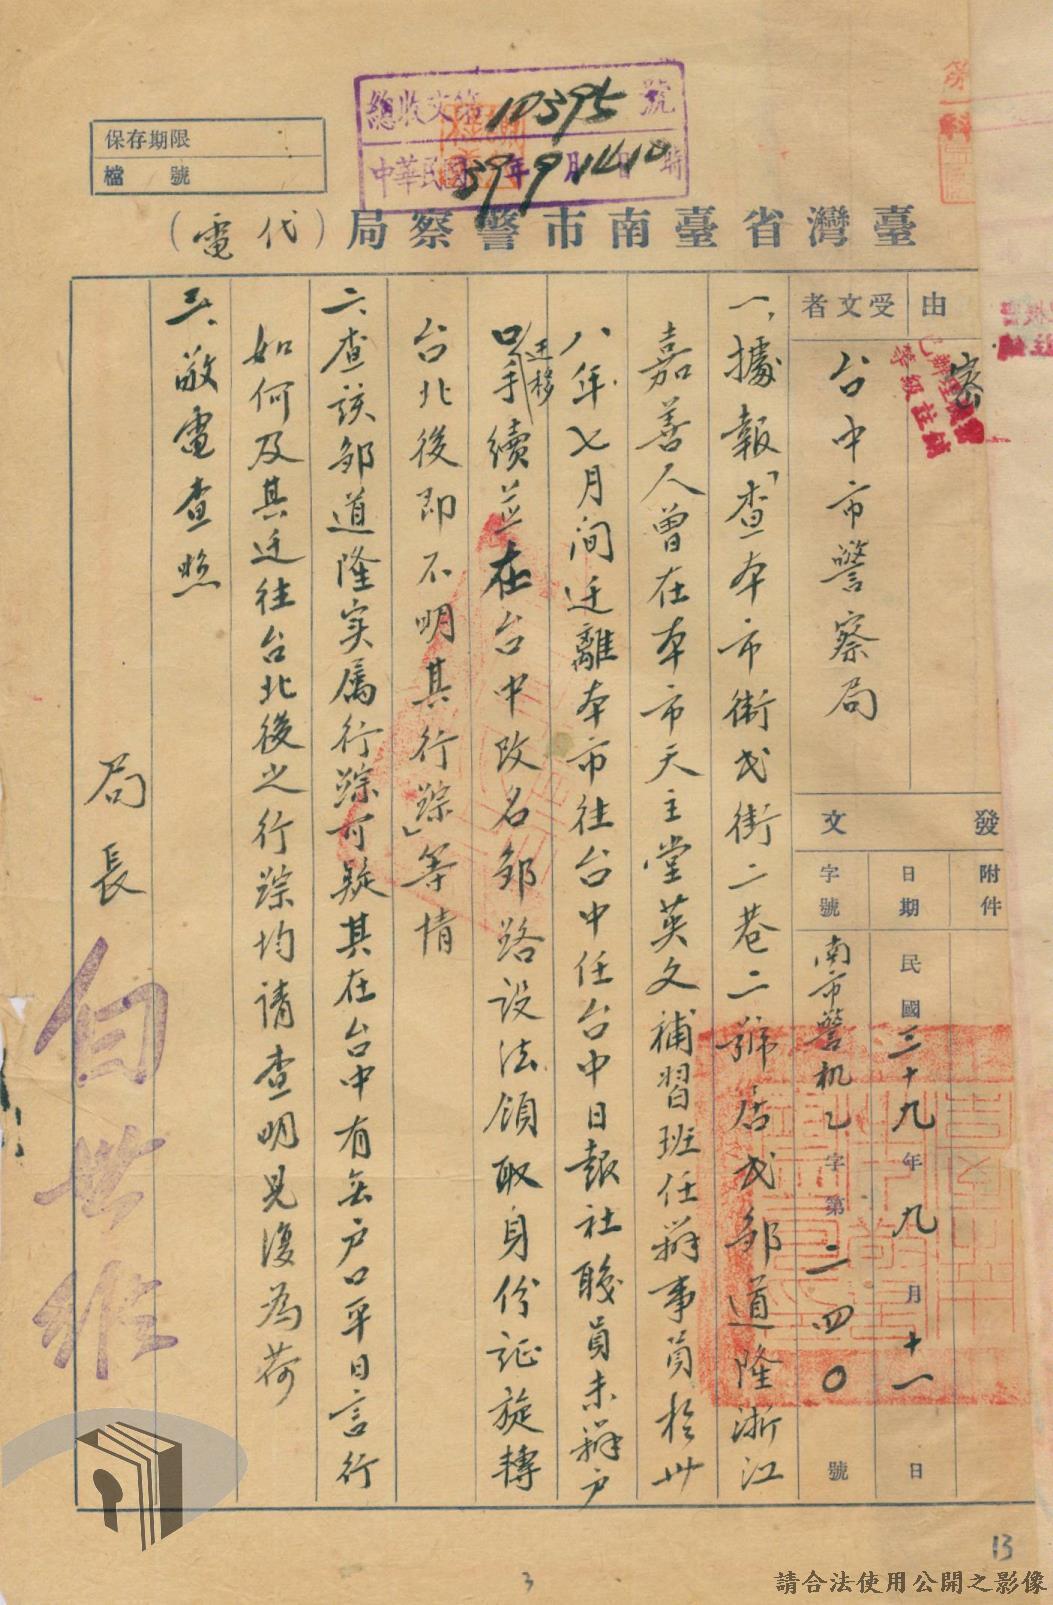 總收文第10395號
中華民國39年9月14日10時
保存期限
檔號
臺灣省臺南市警察局(代電)
由
密
受文者
台中市警察局
發文
附件
日期
民國三十九年九月十一日
字號
南市警机乙字第二四〇號
一、據報「查本市衛民街二巷二號居民鄒道隆浙江
嘉善人曾在本市天主堂英文補習班任辦事員於卅
八年七月间迁離本市往台中任台中日報社職員未辦户
口迁移手續並在台中改名鄒路設法領取身份证旋轉
台北後即不明其行踪」等情
二、查該鄒道隆实属行踪可疑其在台中有無户口平日言行
如何及其迁往台北後之行踪均请查明見復為荷
三、敬電查照
局長
請合法使用公開之影像
13
3